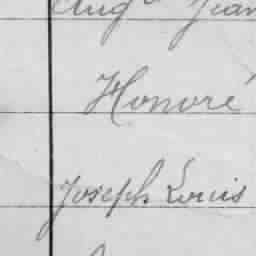 Aug^e Jean
Honoré
Joseph Louis